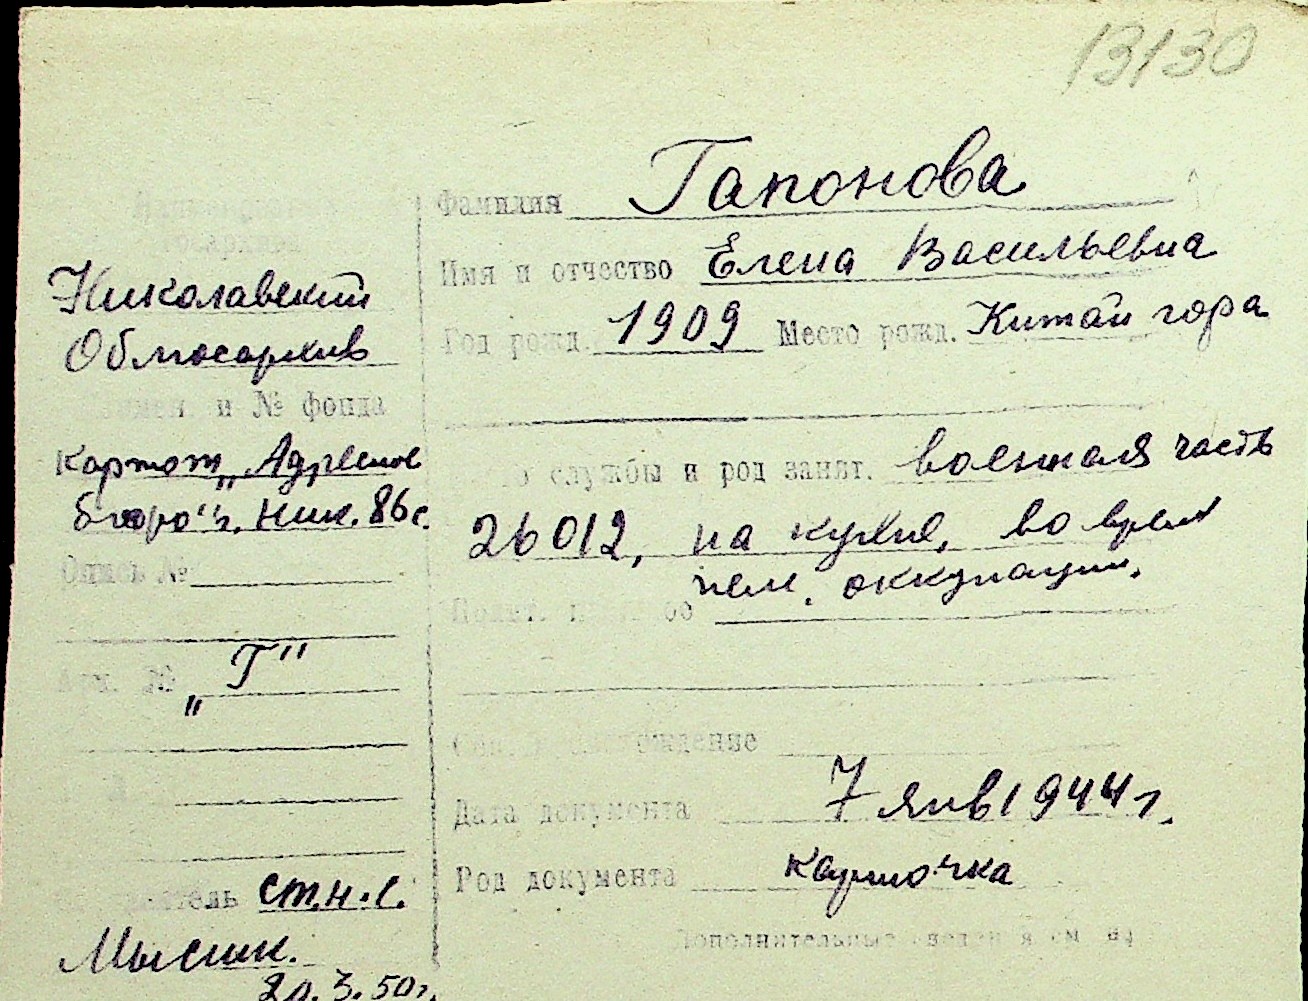 13130
Наименован
госархива
Николаевский
Облгосархив
и № фонда
Картот. „Адресное
бюро" г. Ник. 86с.
Опись №
Арх. № „Г"
ст.н.с.
Мысик.
20.3.50г.
Фамилия Гапонова
Имя и отчество Елена Васильевна
Год рожд. 1909 Место рожд. Китай гора
службы и род занят. военная часть
26012, на кухне, во время
нем. оккупации.
Полит.
Соц. происхождение
Дата документа 7 янв 1944 г.
Род документа карточка
Дополнительные сведения см